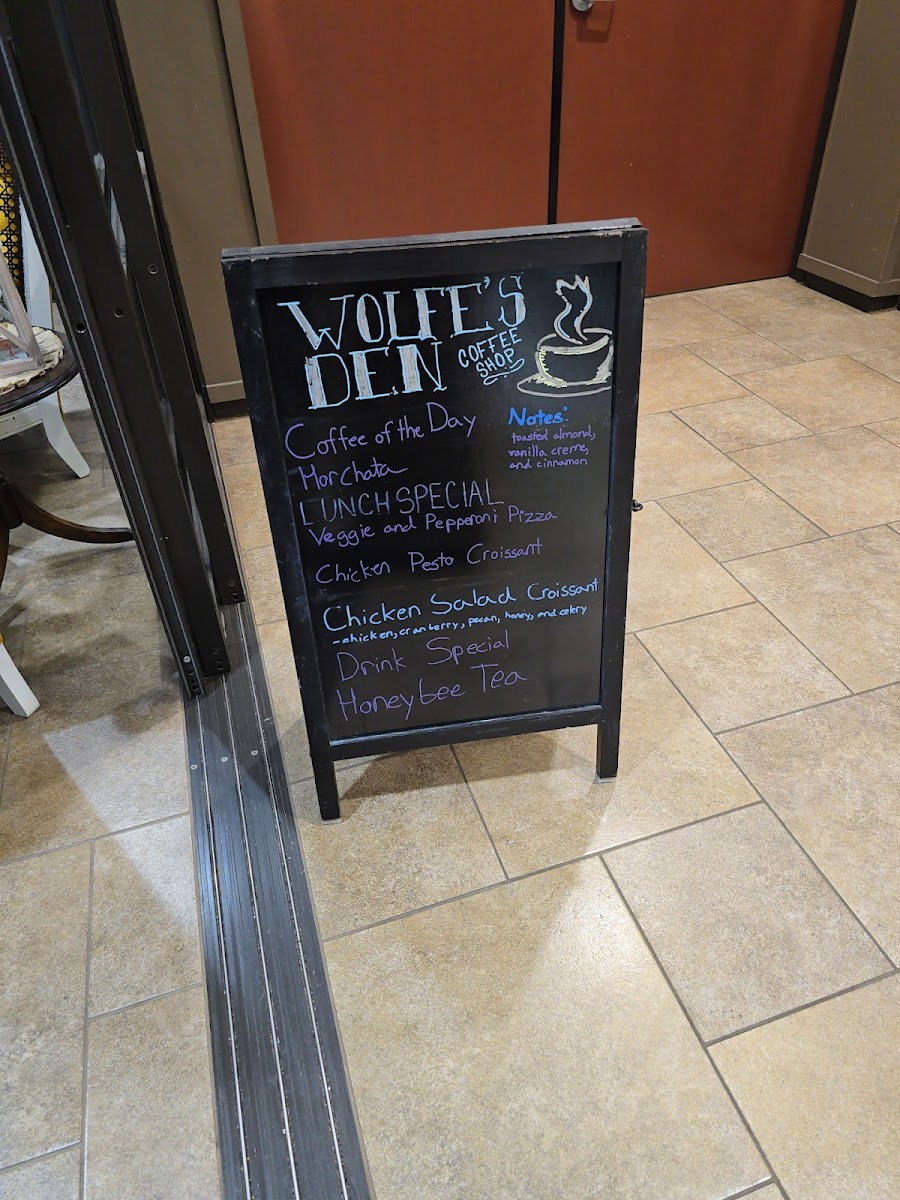 WOLFE'S
DEN
COFFEE
SHOP
Coffee of the Day
Horchata
Notes:
toasted almond,
vanilla creme,
and cinnamon
LUNCH SPECIAL
Veggie and Pepperoni Pizza
Chicken Pesto Croissant
Chicken Salad Croissant
-chicken, cranberry, pecan, honey, and celery
Drink Special
Honeybee Tea